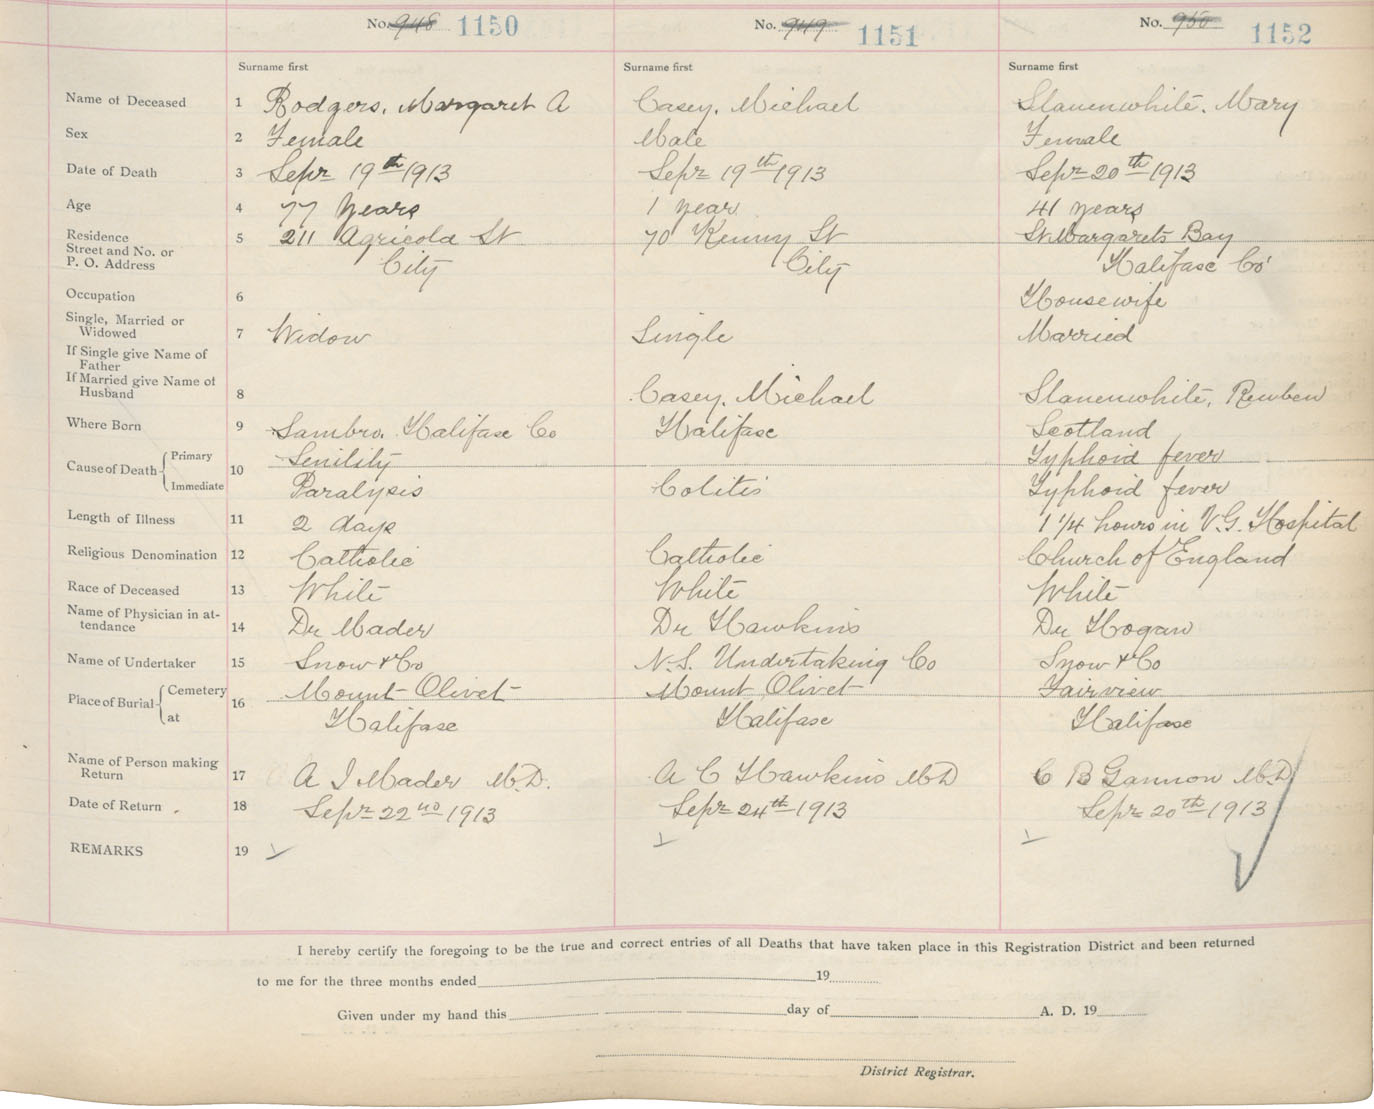 No. 948 1150 No. 949 1151 No. 950 1152
Surname first Surname first Surname first
Name of Deceased 1 Rodgers, Margaret A Casey, Michael Slauenwhite, Mary
Sex 2 Female Male Female
Date of Death 3 Sept 19th 1913 Sept 19th 1913 Sept 20th 1913
Age 4 77 Years 1 year 41 years
Residence 5 211 Agricola St 70 Kenny St St Margarets Bay
Street and No. or
P. O. Address City City Halifax Co
Occupation 6 Housewife
Single, Married or
Widowed 7 Widow Single Married
If Single give Name of
Father
If Married give Name of
Husband 8 Casey, Michael Slauenwhite, Reuben
Where Born 9 Sambro, Halifax Co Halifax Scotland
Cause of Death Primary 10 Senility Typhoid fever
Immediate Paralysis Colitis Typhoid fever
Length of Illness 11 2 days 1 1/4 hours in V.G. Hospital
Religious Denomination 12 Catholic Catholic Church of England
Race of Deceased 13 White White White
Name of Physician in at-
tendance 14 Dr Mader Dr Hawkins Dr Hogan
Name of Undertaker 15 Snow & Co N.S. Undertaking Co Snow & Co
Place of Burial Cemetery 16 Mount Olivet Mount Olivet Fairview
at Halifax Halifax Halifax
Name of Person making
Return 17 A I Mader M.D. A C Hawkins MD C B Gannon M.D
Date of Return 18 Sept 22nd 1913 Sept 24th 1913 Sept 20th 1913
REMARKS 19
I hereby certify the foregoing to be the true and correct entries of all Deaths that have taken place in this Registration District and been returned
to me for the three months ended 19
Given under my hand this day of A. D. 19
District Registrar.